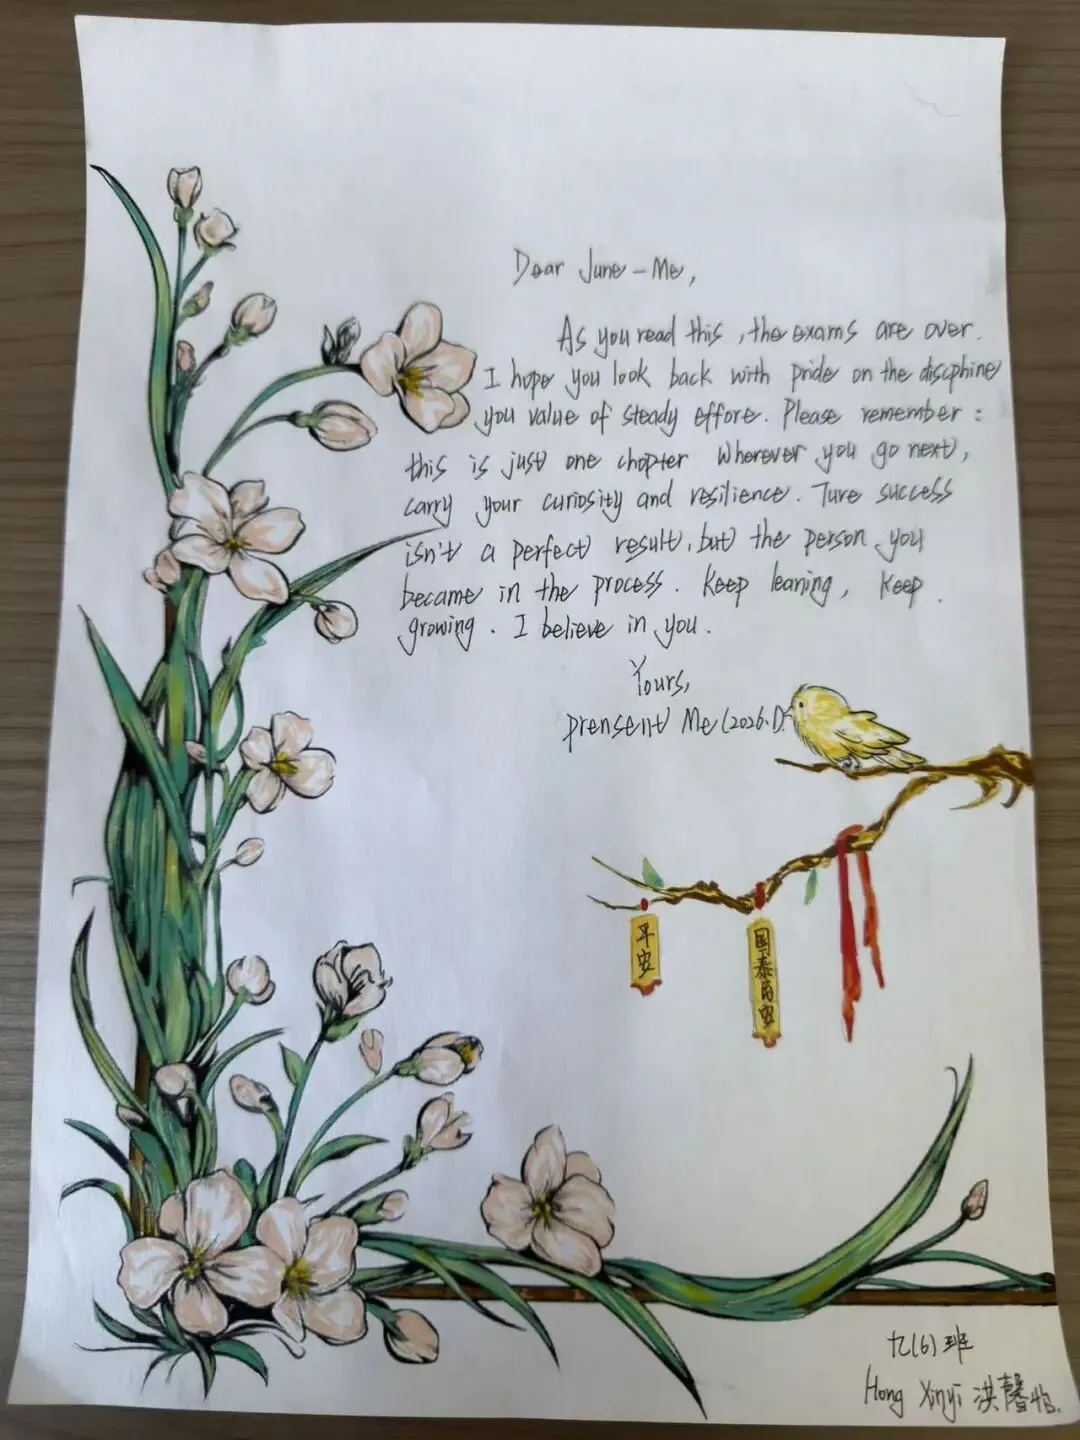 Dear June-Me,
As you read this, the exams are over.
I hope you look back with pride on the discphine
you value of steady effore. Please remember:
this is just one chopter Wherever you go next,
carry your curiosity and resilience. Ture success
isn't a perfect result, but the person you
became in the process. Keep learing, Keep
growing. I believe in you.
Yours,
prensent Me (2026.1).
平安
国泰民安
九(6)班
Hong Xinyi 洪馨怡.